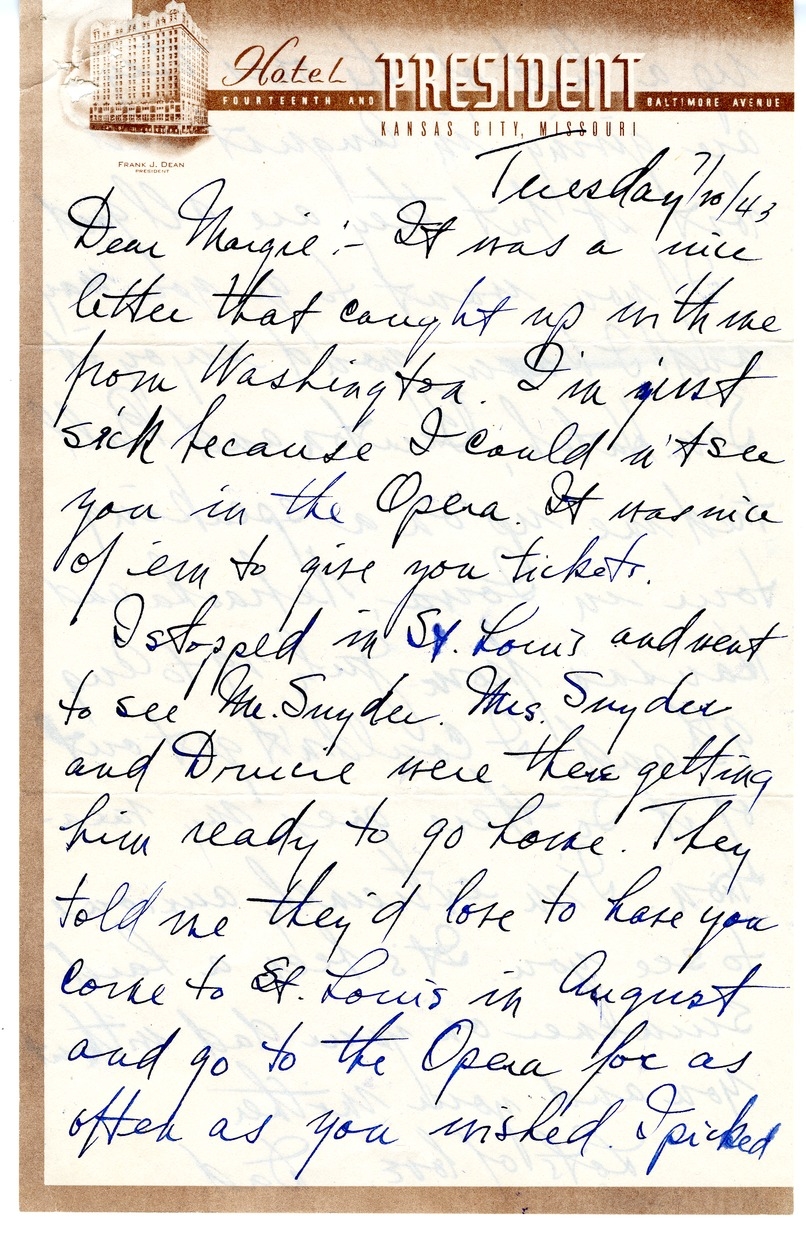 Hotel PRESIDENT
FOURTEENTH AND BALTIMORE AVENUE
KANSAS CITY, MISSOURI
FRANK J. DEAN
PRESIDENT
Tuesday 7/20/43
Dear Margie:- It was a nice
letter that caught up with me
from Washington. I'm just
sick because I could n't see
you in the Opera. It was nice
of 'em to give you tickets.
I stopped in St. Louis and went
to see Mr. Snyder. Mrs. Snyder
and Drucie were there getting
him ready to go home. They
told me they'd love to have you
come to St. Louis in August
and go to the Opera for as
often as you wished. I picked